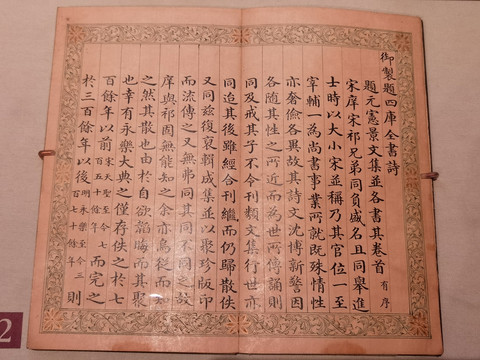 御製題四庫全書詩
題元憲景文集並各書其卷首 有序
宋庠宋祁兄弟同負盛名且同舉進
士時以大小宋並稱乃其官位一至
宰輔一為尚書事業所就既殊情性
亦奢儉各異故其詩文沈博新警因
各隨其性之所近而為世所傳誦則
同及戒其子不令刊類文集行世亦
同迨其後雖經合刊繼而仍歸散佚
又同茲復裒輯成集並以聚珍版印
而流傳之又無弗同其同不同之故
庠與祁固無能知之余亦烏從而
之然其散也由於自欲韜晦而其聚
也幸有永樂大典之僅存佚之於七
百餘年以前 宋天聖至今七百五十餘年 而完之
於三百餘年以後 明永樂至今三百七十餘年 則
2